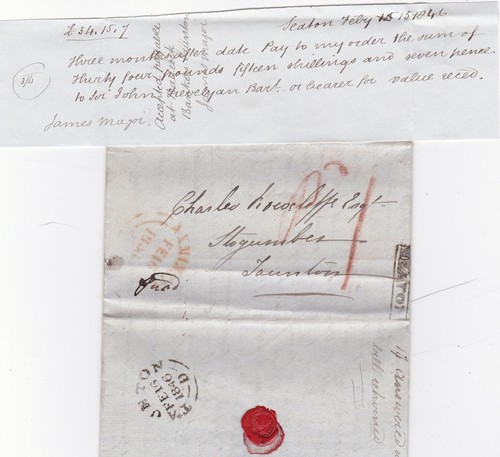 £34.15.7
Seaton Feby 15 1846
Three months after date Pay to my order the sum of
Thirty four pounds fifteen shillings and seven pence
to Sir John Trevelyan Bart. or bearer for value reced.
James Major.
3/6
Accepted payable
at
Bankers Taunton
Major
Charles Rowcliffe Esqr.
Stogumber
Taunton
Paid
1
FE
SEATON
TAUNTON
FE 16
1846
D
answered
bill returned